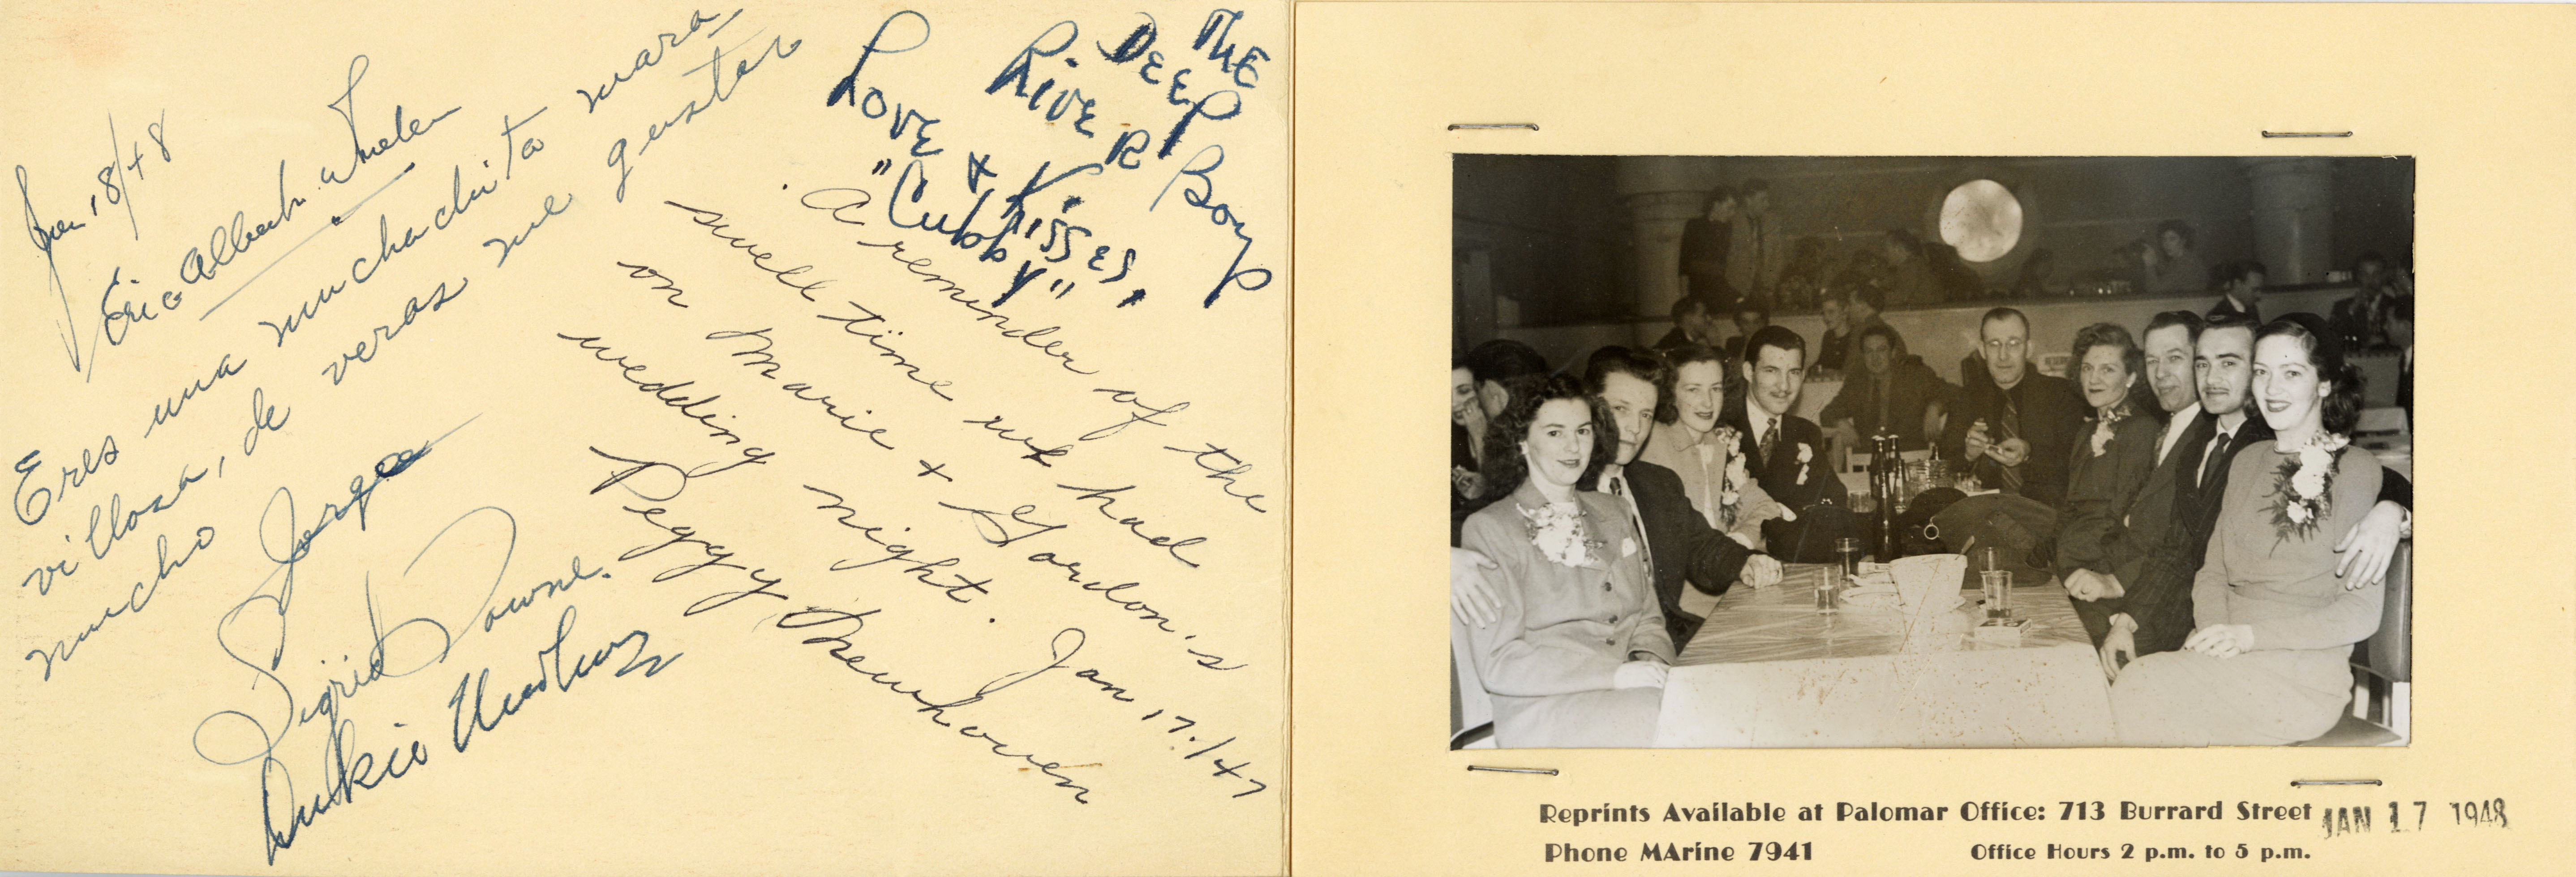 Jan. 18/48
Eric Albert Whelen
Eres una muchachita mara
villosa, de veras me gustas
mucho
Jorge
Sigrid Downe.
THE
DEEP
RIVER BOYS
LOVE + KISSES,
"Cubby"
A reminder of the
swell time we had
on Marie + Gordon's
wedding night. Jan 17./47
Peggy
Reprints Available at Palomar Office: 713 Burrard Street
JAN 17 1948
Phone MArine 7941
Office Hours 2 p.m. to 5 p.m.